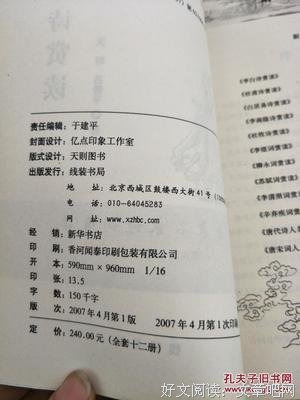 诗赏读
责任编辑：于建平
封面设计：亿点印象工作室
版式设计：天则图书
出版发行：线装书局
地 址：北京西城区鼓楼西大街41号
电 话：010-64045283
网 址：www.xzhbc.com
经 销：新华书店
印 刷：香河闻泰印刷包装有限公司
开 本：590mm × 960mm 1/16
印 张：13.5
字 数：150千字
版 次：2007年4月第1版 2007年4月第1次印刷
定 价：240.00元（全套十二册）
《李白诗赏读》
《杜甫诗赏读》
《白居易诗赏读》
《李商隐诗赏读》
《杜牧诗赏读》
《李煜词赏读》
《柳永词赏读》
《苏轼词赏读》
《李清照词赏读》
《辛弃疾词赏读》
《唐代诗人
《唐宋词人
孔夫子旧书网
好文阅读：文章吧网